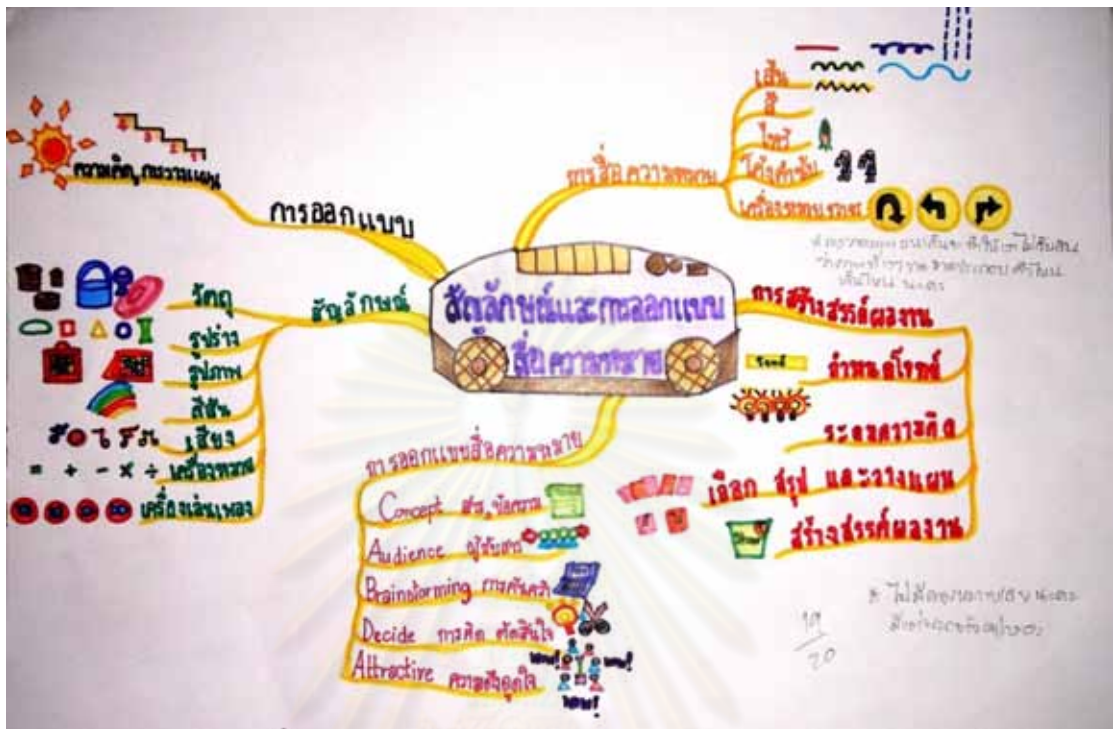 สัญลักษณ์และการออกแบบ
สื่อความหมาย
การออกแบบ
ความคิด, การวางแผน
สัญลักษณ์
วัตถุ
รูปร่าง
รูปภาพ
สีสัน
เสียง
เครื่องหมาย
= + - × ÷
เครื่องเล่นเพลง
การสื่อความหมาย
เส้น
สี
โค้ง
เครื่องหมายจราจร
การสร้างสรรค์ผลงาน
กำหนดโจทย์
โจทย์
ระดมความคิด
เลือก สรุป และวางแผน
สร้างสรรค์ผลงาน
การออกแบบสื่อความหมาย
Concept สาร, ข้อความ
Audience ผู้รับสาร
Brainstorming การค้นคว้า
Decide การคิด ตัดสินใจ
Attractive ความดึงดูดใจ
wow! wow!
wow!
19
20